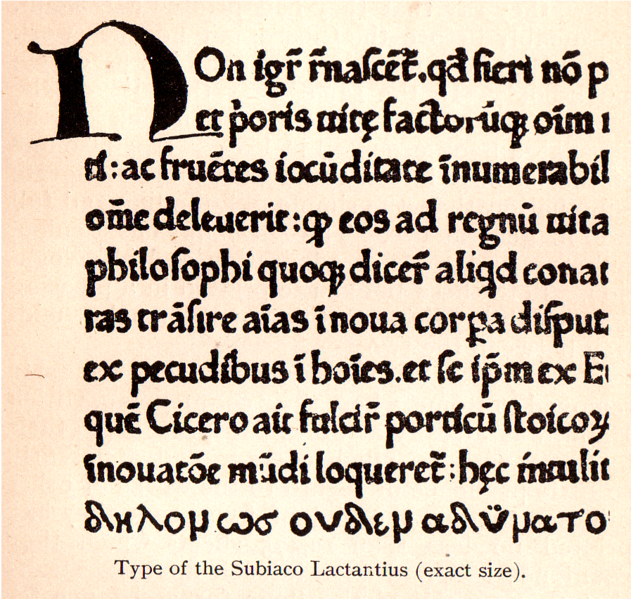 NOn igr̃ r̃nascẽt̃. qđ fieri nõ p
et p̍oris uitę factorũqꝫ oĩm ı
tĩ: ac fruẽtes iocũditate ĩnumerabil
om̃e deleuerit: ꝙ eos ad regnũ uita
philosophi quoqꝫ dicer̃ aliqd conat
ras trãsire aĩas ĩ noua corꝑa disput
ex pecudibus ĩ hoĩes. et se ip̃m ex E
quẽ Cicero ait fulcir̃ porticũ stoicoꝝ
ĩnouatõe mũdi loqueret̃: hęc ĩtulit
δηλομ ωσ ουδεμ αδϋματο
Type of the Subiaco Lactantius (exact size).